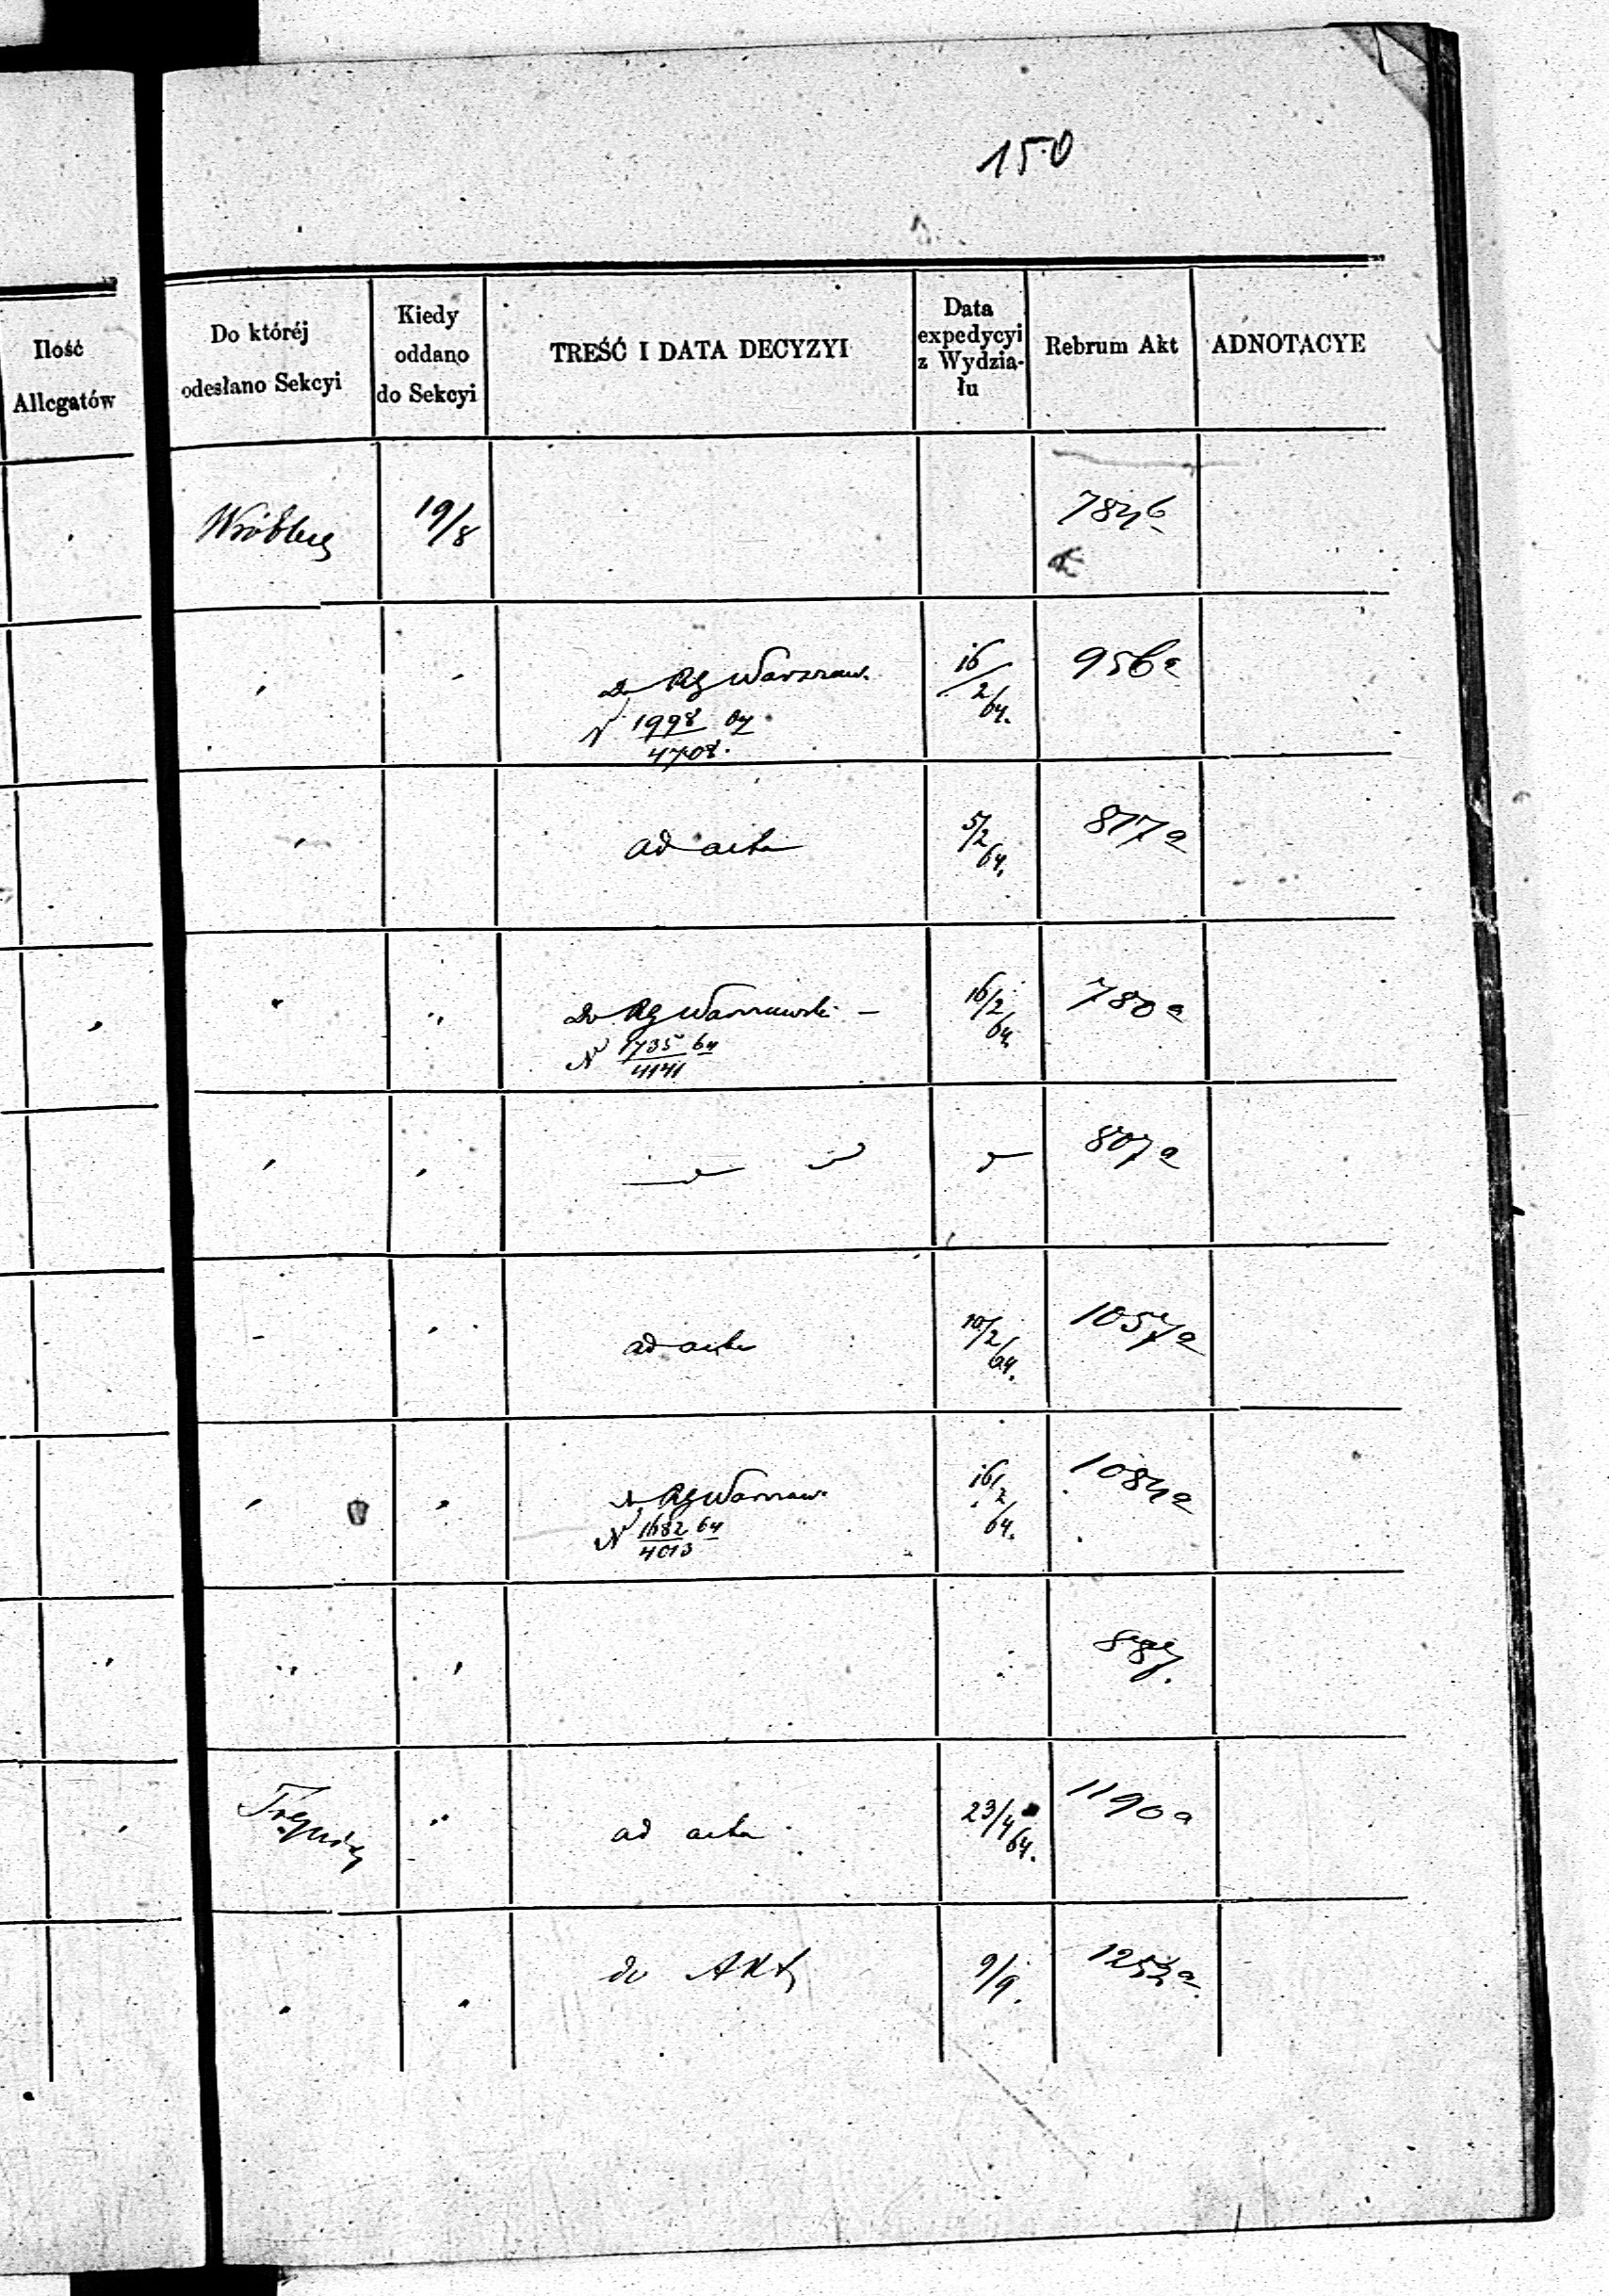 150
Ilość
Allegatów
Do któréj
odesłano Sekcyi
Kiedy
oddano
do Sekcyi
TREŚĆ I DATA DECYZYI
Data
expedycyi
z Wydzia-
łu
Rebrum Akt
ADNOTACYE
19/8
784b
Do RG Warszaw.
N 1998 64
4708.
16/2/64.
956a
ad acta
5/2/64.
817a
Do RG Warszawski –
N 1735 64
4141
16/2/64
780a
807a
ad acta
10/2/64.
1057a
do RG Warszaw.
N 1682 64
4013
16/2/64.
1084a
887.
ad acta
23/4/64.
1190a
do Akt
9/9.